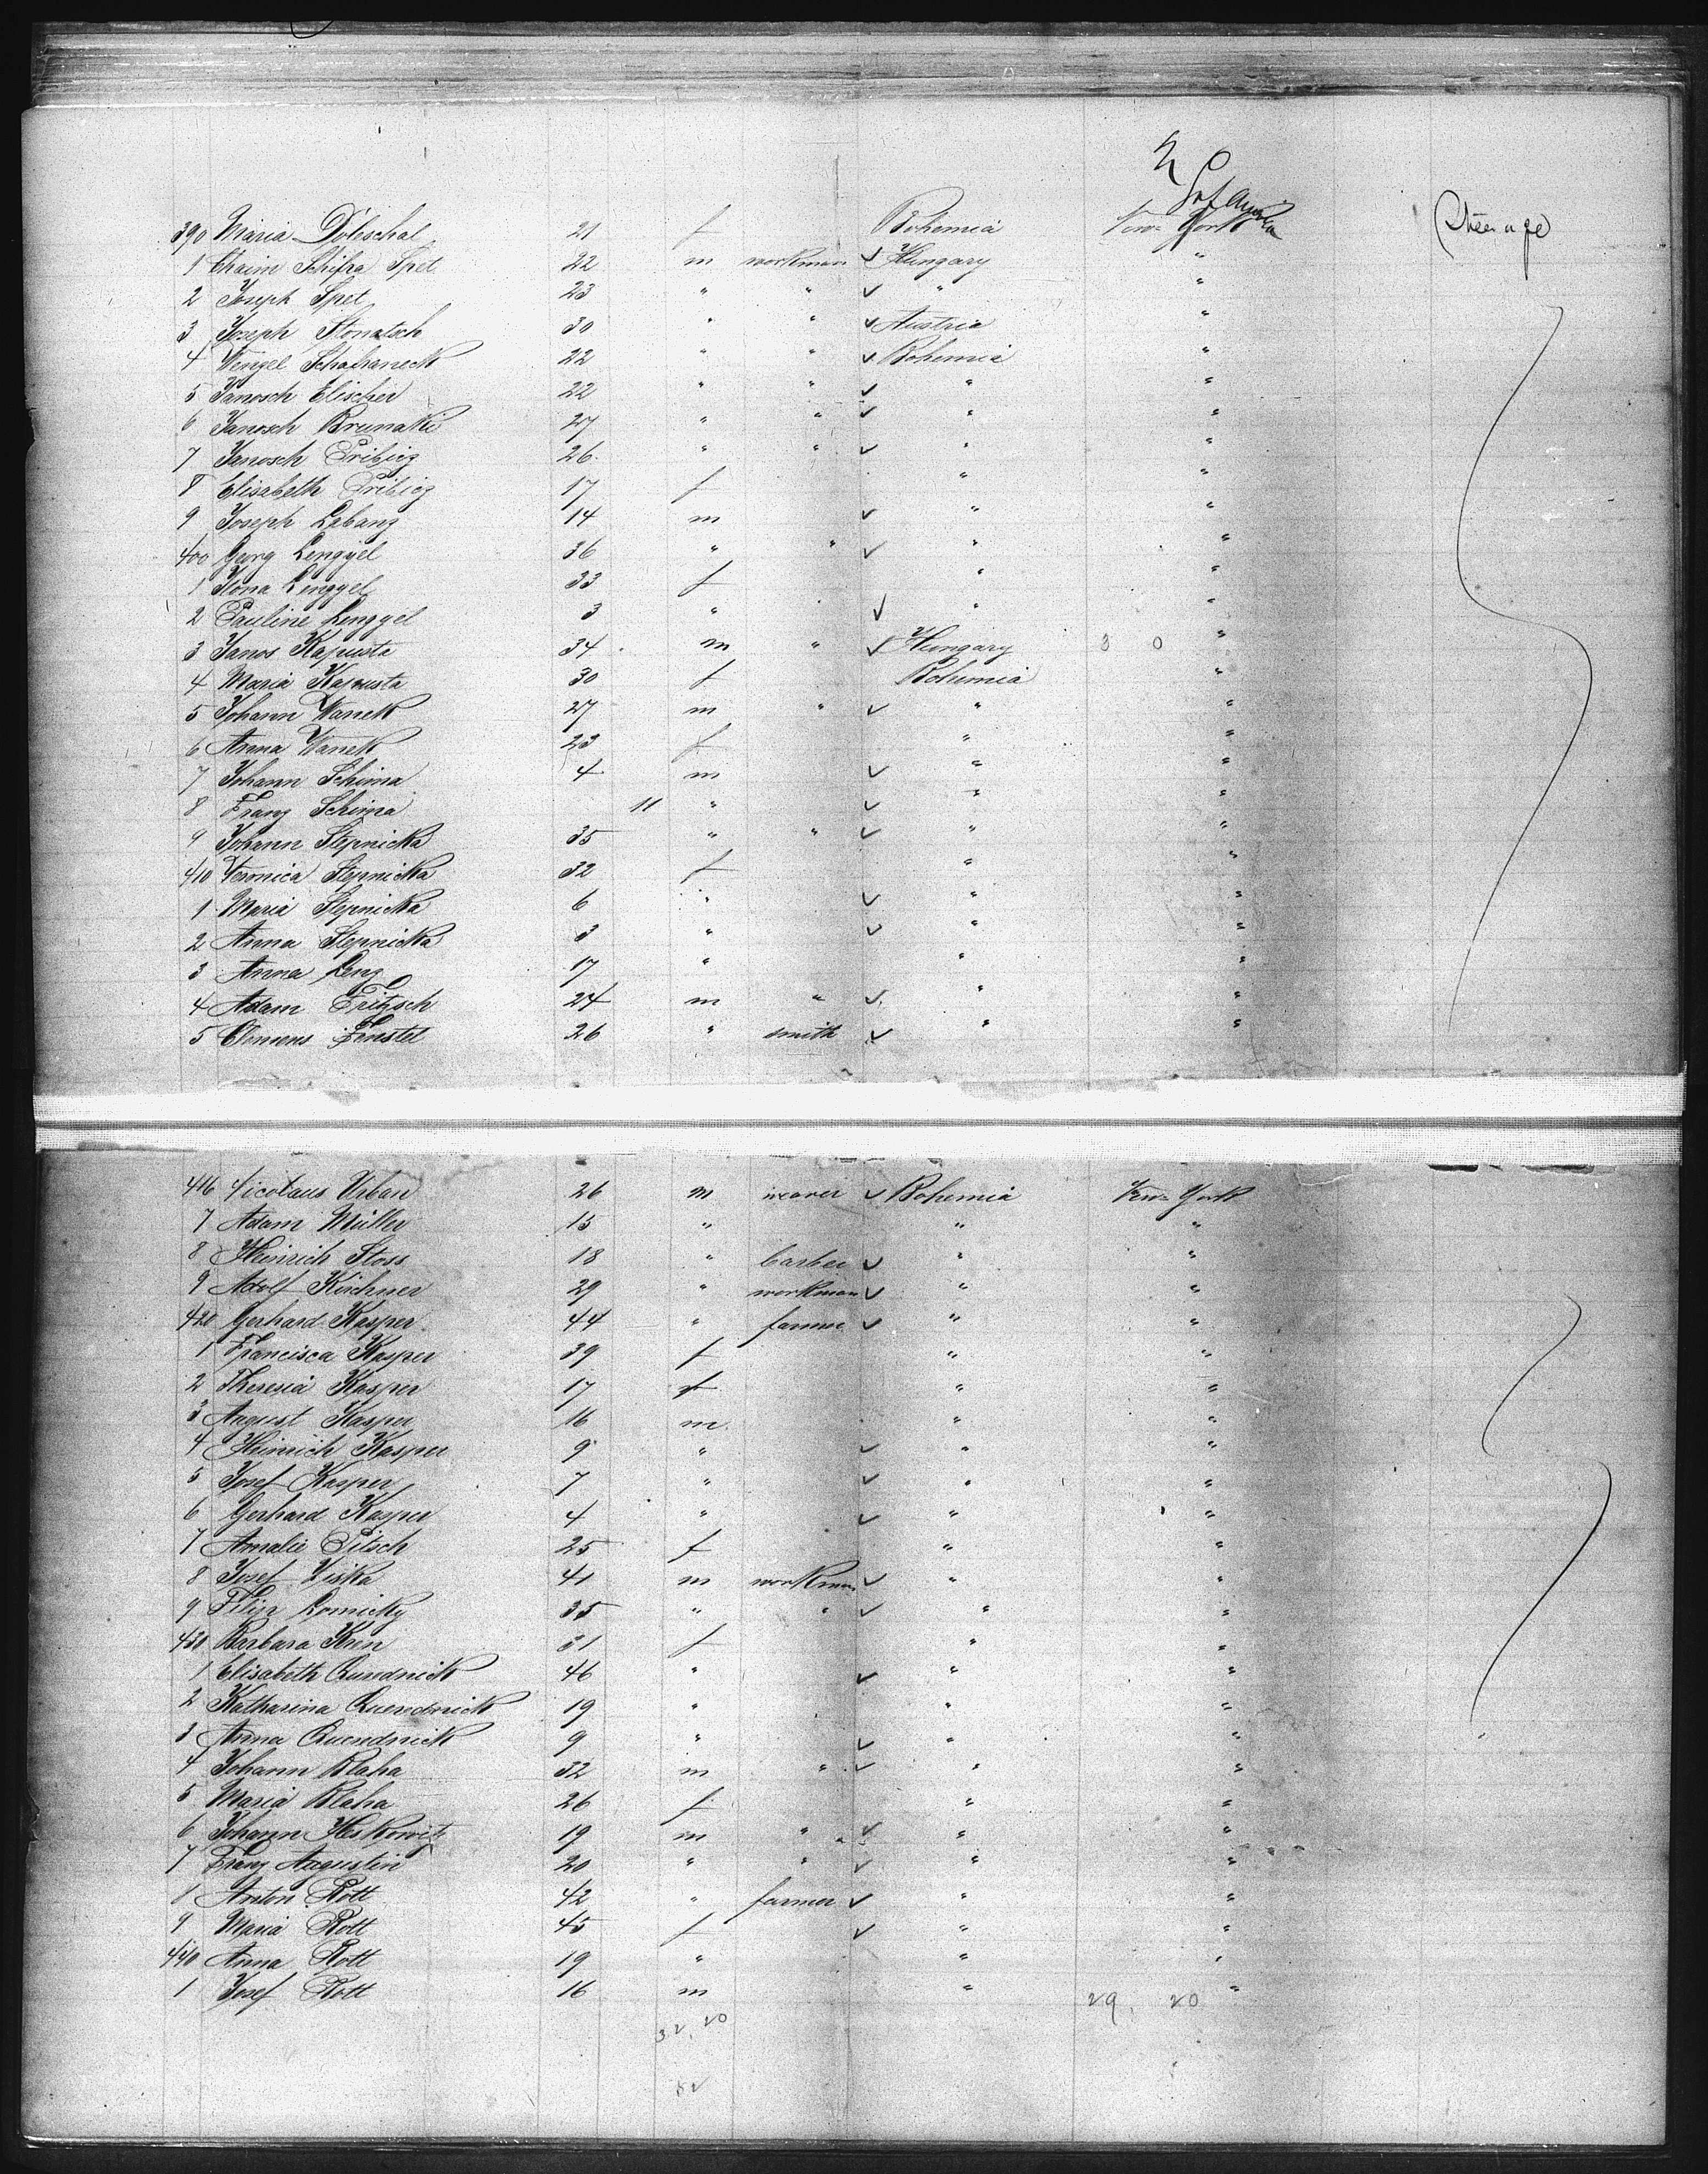 (Steerage)
390 Maria Doleschal 21 f Bohemia New-York
1 Chaim Schifra Spet 22 m workman ✓ Hungary "
2 Joseph Spet 23 " " ✓ " "
3 Joseph Stonatsch 30 " " ✓ Austria "
4 Wenzel Schafraneck 22 " " ✓ Bohemia "
5 Janosch Elischer 22 " " ✓ " "
6 Janosch Brunaki 27 " " ✓ " "
7 Janosch Pribicz 26 " " ✓ " "
8 Elisabeth Pribicz 17 f " "
9 Joseph Labanz 14 m ✓ " "
400 Georg Lengyel 36 " " ✓ " "
1 Ilona Lengyel 33 f " "
2 Pauline Lengyel 3 " ✓ " "
3 Janos Kapusta 34 m " ✓ Hungary "
4 Maria Kapusta 30 f Bohemia "
5 Johann Wanek 27 m " ✓ " "
6 Anna Wanek 23 f " "
7 Johann Schima 4 m ✓ " "
8 Franz Schima 11 " ✓ " "
9 Johann Stepnicka 35 " " ✓ " "
410 Veronica Stepnicka 32 f " "
1 Maria Stepnicka 6 " ✓ " "
2 Anna Stepnicka 3 " ✓ " "
3 Anna Lenz 17 " " "
4 Adam Fritzsch 24 m " ✓ " "
5 Clemens Fenstel 26 " smith ✓ " "
416 Nicolaus Urban 26 m weaver ✓ Bohemia New-York
7 Adam Müller 15 " " "
8 Heinrich Stoss 18 " barber ✓ " "
9 Adolf Kirchner 29 " workman ✓ " "
420 Gerhard Kasper 44 " farmer ✓ " "
1 Francisca Kasper 39 f " "
2 Theresia Kasper 17 f " "
3 August Kasper 16 m " "
4 Heinrich Kasper 9 " ✓ " "
5 Josef Kasper 7 " ✓ " "
6 Gerhard Kasper 4 " ✓ " "
7 Amalie Pitsch 25 f " "
8 Josef Ziska 41 m workman ✓ " "
9 Filip Lomicky 35 " " ✓ " "
430 Barbara Kren 31 f " "
1 Elisabeth Quendnick 46 " ✓ " "
2 Katharina Quendnick 19 " " "
3 Anna Quendnick 9 " ✓ " "
4 Johann Blaha 32 m " ✓ " "
5 Maria Blaha 26 f " "
6 Johann Herkowitz 19 m " ✓ " "
7 Franz Augustin 20 " " ✓ " "
8 Anton Rott 42 " farmer ✓ " "
9 Maria Rott 45 f ✓ " "
440 Anna Rott 19 " " "
1 Josef Rott 16 m " "
29. 20
32. 20
52